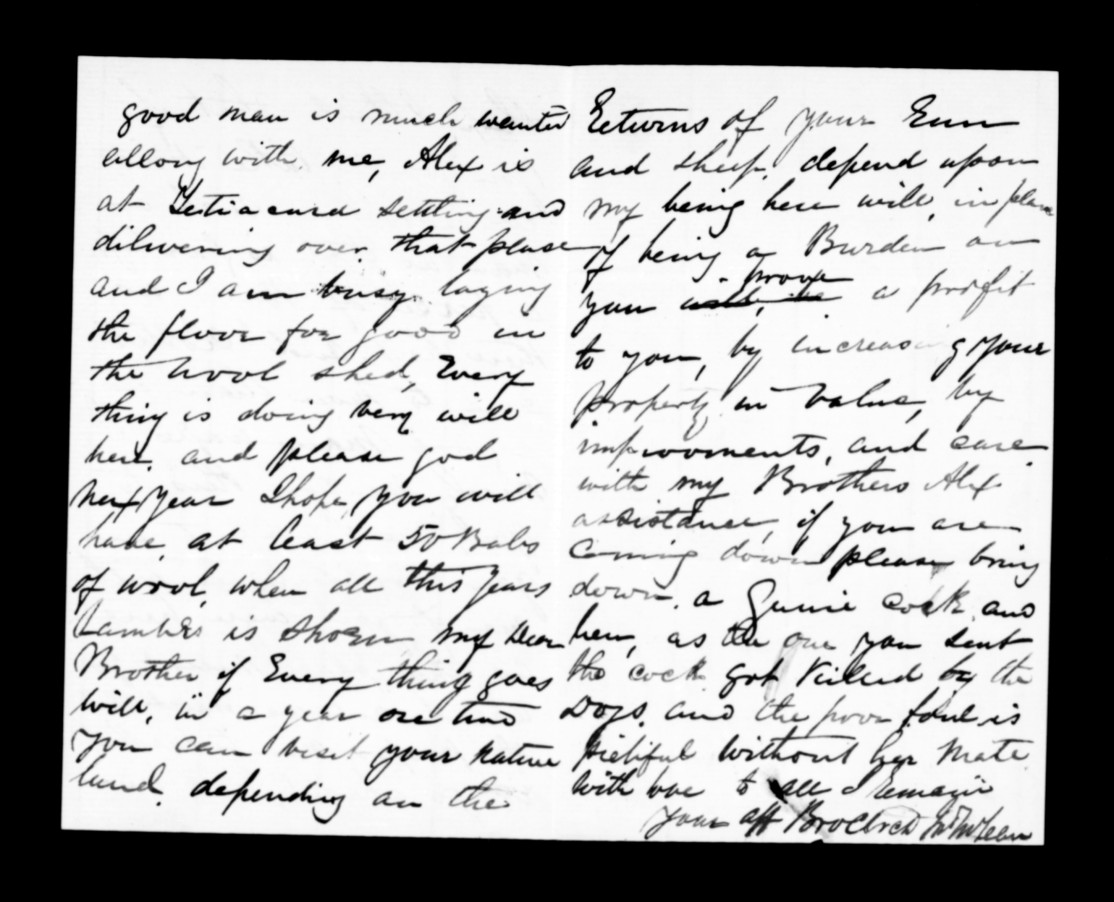 good man is much wanted
allong with me, Alex is
at settling and
dilivering over that place
and I am busy laying
the floor for good in
the wool shed, Every
thing is doing very will
here, and please god
next year I hope you will
have at least 50 Bales
of wool, when all this years
Lambes is shorn my Dear
Brother if Every thing goes
will, in a year or two
you can visit your native
land, depending an the
Returns of your Run
and sheep, depend upon
my being here will, in place
of being a Burden an
you will be prove a profit
to you, by increasing your
property in value, by
improvments, and care
with my Brothers Alex
assistance, if you are
coming down please bring
down, a Gunie cock and
hen, as the one you sent
the cock got killed by the
Dogs, and the poor foul is
pietiful without her mate
with love to all I remain
your aff Brother McLean